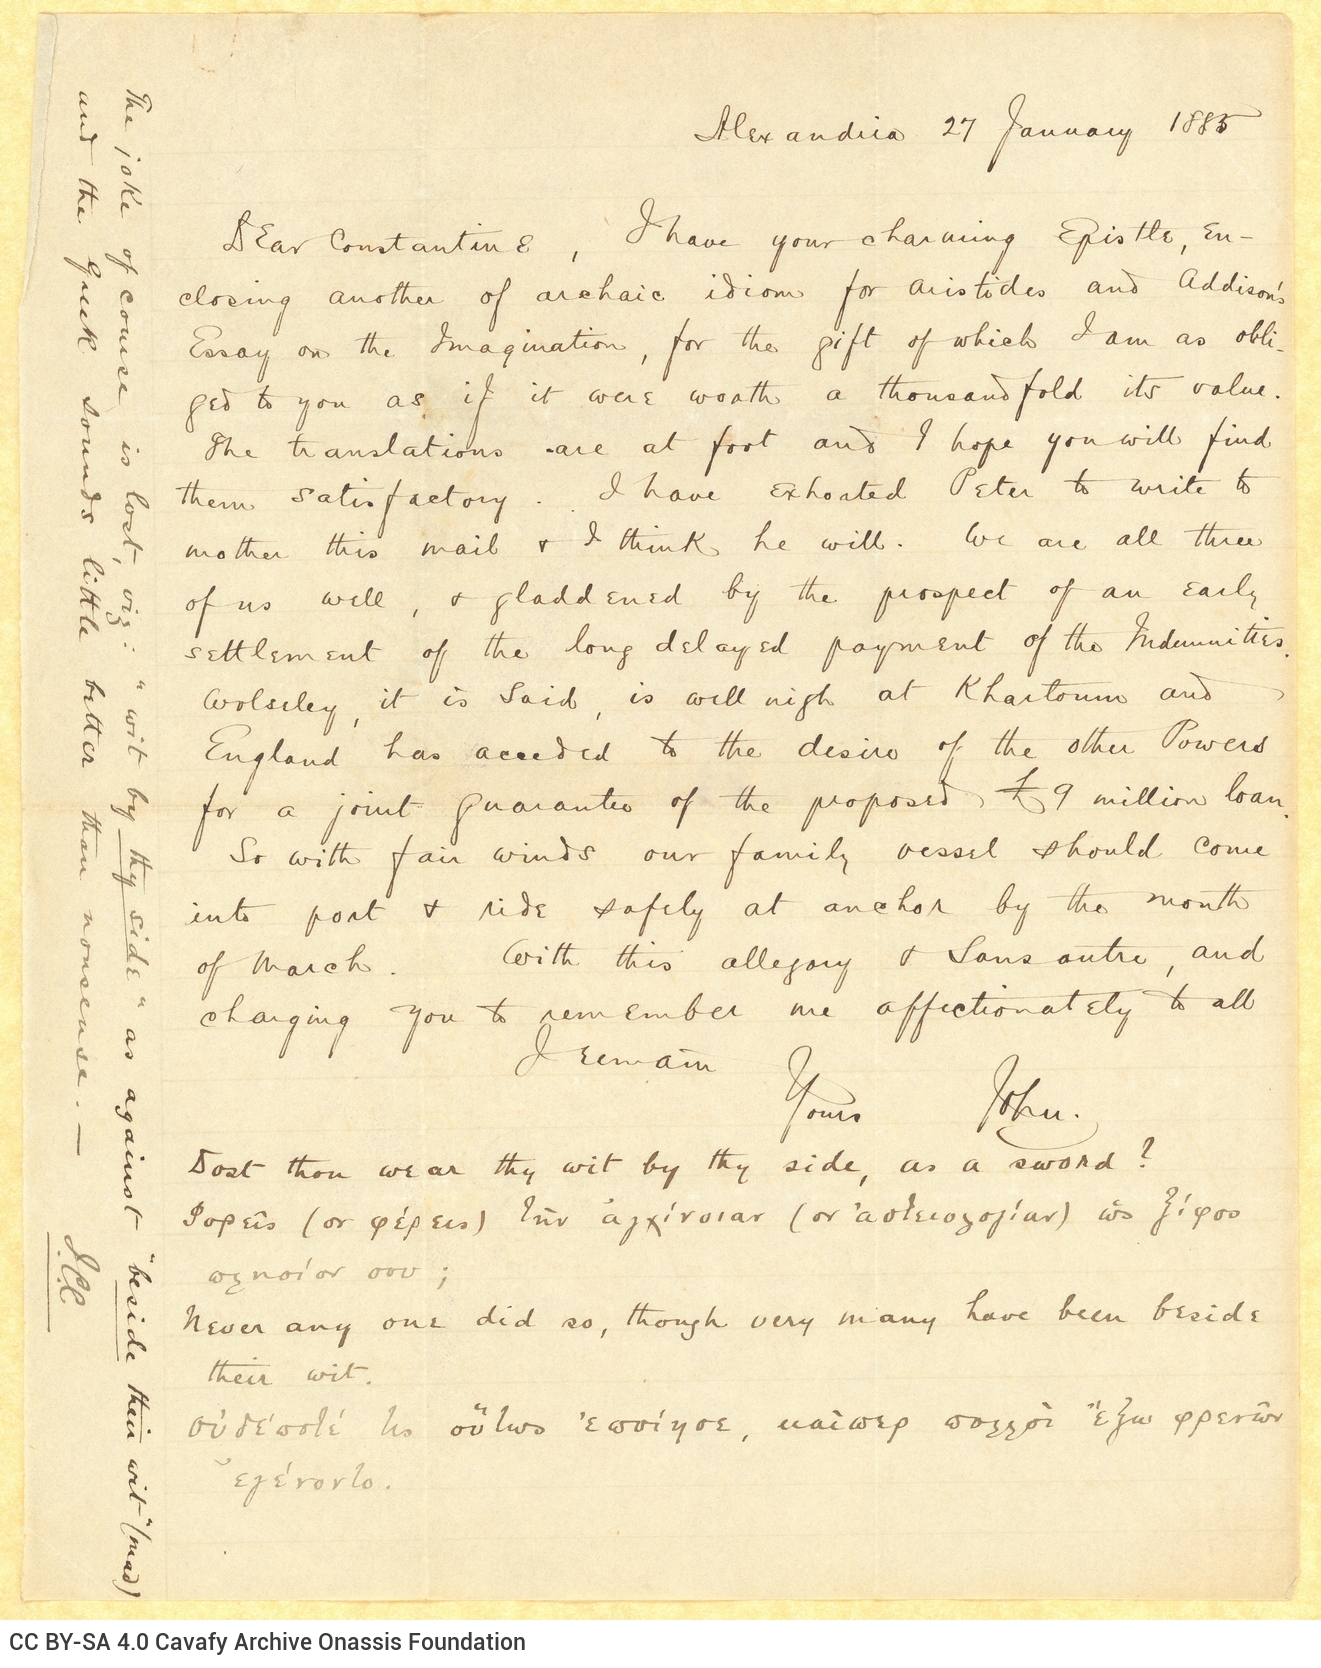 Alexandria 27 January 1885
Dear Constantine, I have your charming Epistle, en-
closing another of archaic idiom for Aristides and Addison's
Essay on the Imagination, for the gift of which I am as obli-
ged to you as if it were worth a thousandfold its value.
The translations are at foot and I hope you will find
them satisfactory. I have exhorted Peter to write to
mother this mail & I think he will. We are all three
of us well, & gladdened by the prospect of an early
settlement of the long delayed payment of the Indemnities.
Wolseley, it is said, is well nigh at Khartoum and
England has acceded to the desire of the other Powers
for a joint guarantee of the proposed £9 million loan.
So with fair winds our family vessel should come
into port & ride safely at anchor by the month
of March. With this allegory & sans autre, and
charging you to remember me affectionately to all
I remain
Yours John.
Dost thou wear thy wit by thy side, as a sword?
Φορεῖς (or φέρεις) τὴν ἀγχίνοιαν (or ἀστειολογίαν) ὡς ξίφος
πλησίον σου;
Never any one did so, though very many have been beside
their wit.
Οὐδέποτέ τις οὕτως ἐποίησε, καίπερ πολλοὶ ἔξω φρενῶν
ἐγένοντο.
The joke of course is lost, viz: "wit by thy side" as against "beside their wit" (mad)
and the Greek sounds little better than nonsense. —
J.C.
CC BY-SA 4.0 Cavafy Archive Onassis Foundation